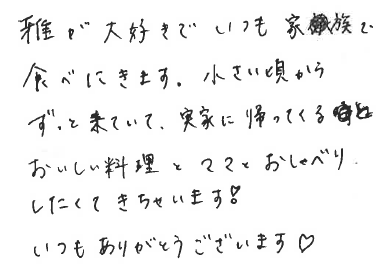 雅が大好きでいつも家族で
食べにきます。小さい頃から
ずっと来ていて、実家に帰ってくると
おいしい料理とママとおしゃべり
したくてきちゃいます!
いつもありがとうございます♡